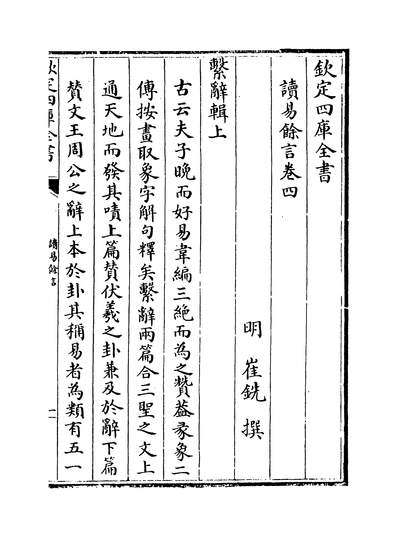 欽定四庫全書
讀易餘言卷四
明 崔銑 撰
繫辭輯上
古云夫子晚而好易韋編三絕而為之贊蓋彖象二
傳按畫取象字解句釋矣繫辭兩篇合三聖之文上
通天地而發其嘖上篇贊伏羲之卦兼及於辭下篇
賛文王周公之辭上本於卦其稱易者為類有五一
欽定四庫全書
讀易餘言
一